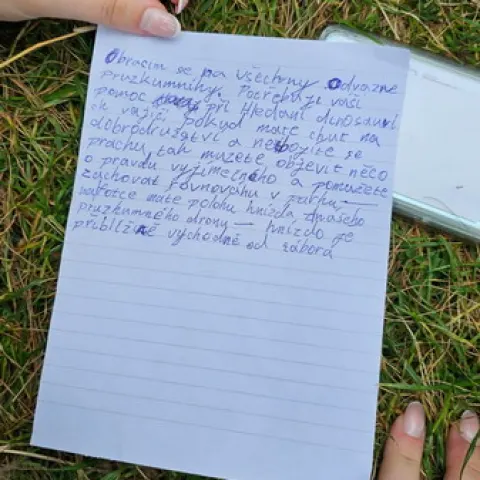 Obracím se na všechny Odvážné
průzkumníky. Potřebuji vaši
pomoc při Hledání dinosauří
ch vajíčí, pokud máte chuť na
dobrodružství a nebojíte se
prachu, tak můzete objevit něco
o pravdu vyjímečného a pomůžete
zachovat rovnováhu v parku—
nafotce máte polohu hnízda znašeho
průzkumného dronu — hnízdo je
přibližně východně od zábora